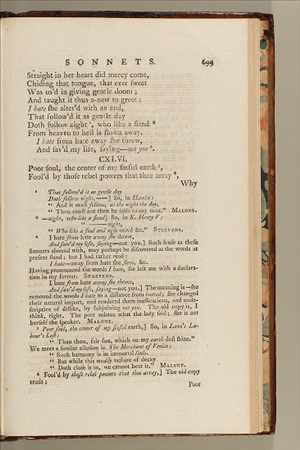 SONNETS. 699
Straight in her heart did mercy come,
Chiding that tongue, that ever sweet
Was us'd in giving gentle doom;
And taught it thus a-new to greet:
I hate she alter'd with an end,
That follow'd it as gentle day
Doth follow night ⁷, who like a fiend ⁸
From heaven to hell is flown away.
I hate from hate away she threw,
And sav'd my life, saying—not you ⁹.
CXLVI.
Poor soul, the center of my sinful earth ¹,
Fool'd by those rebel powers that thee array ²,
Why
⁷ That follow'd it as gentle day
Doth follow night,—] So, in Hamlet:
" And it must follow, as the night the day,
" Thou canst not then be false to any man." MALONE.
⁸ —night, who like a fiend] So, in K. Henry V:
—night,
" Who like a foul and ugly witch &c." STEEVENS.
⁹ I hate from hate away she threw,
And sav'd my life, saying—not you.] Such sense as these
Sonnets abound with, may perhaps be discovered as the words at
present stand; but I had rather read:
I hate—away from hate she flew, &c.
Having pronounced the words I hate, she left me with a declara-
tion in my favour. STEEVENS.
I hate from hate away she threw,
And sav'd my life, saying—not you.] The meaning is—she
removed the words I hate to a distance from hatred; she changed
their natural import, and rendered them inefficacious, and unde-
scriptive of dislike, by subjoining not you. The old copy is, I
think, right. The poet relates what the lady said; she is not
herself the speaker. MALONE.
¹ Poor soul, the center of my sinful earth,] So, in Love's La-
bour's Lost:
" Than thou, fair sun, which on my earth dost shine."
We meet a similar allusion in The Merchant of Venice:
" Such harmony is in immortal souls.
" But while this muddy vesture of decay
" Doth close it in, we cannot hear it." MALONE.
² Fool'd by those rebel powers that thee array,] The old copy
reads:
Poor